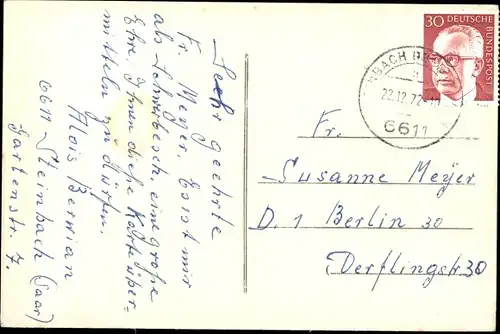 Sehr geehrte
Fr. Meyer. Es ist mir
als Schwerbesch. eine große
Ehre, Ihnen diese Karte über-
mitteln zu dürfen.
Alois Berwian
6611 Steinbach (Saar)
Gartenstr. 7.
30 DEUTSCHE BUNDESPOST
BACH
22.12.72
6611
Fr.
Susanne Meyer
D. 1 Berlin 30
Derflingstr 30